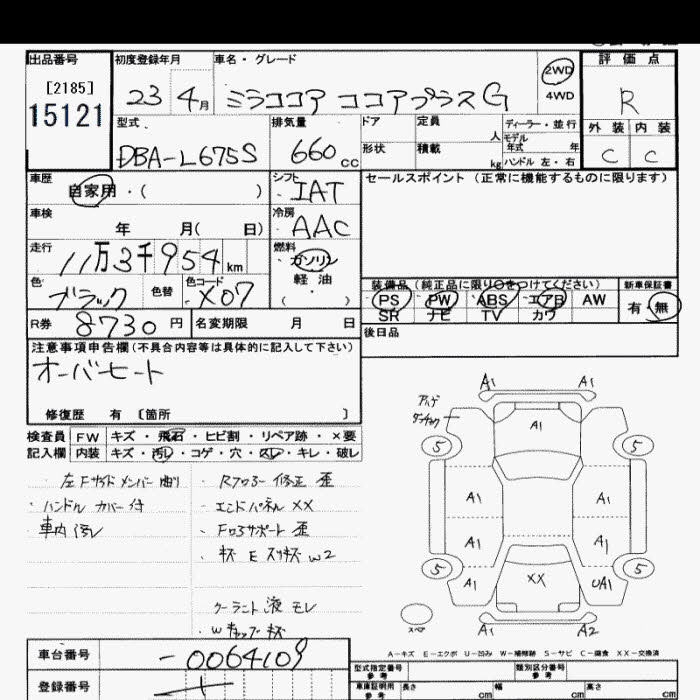 出品番号 初度登録年月 車名・グレード 2WD 評価点
[2185] 23 4月 ミラココア ココアプラスG 4WD R
15121 型式 排気量 ドア 定員 人 ディーラー・並行 外装 内装
DBA-L675S 660cc 形状 積載 kg モデル年式 年 C C
ハンドル 左・右
車歴 シフト セールスポイント (正常に機能するものに限ります)
自家用・( ) IAT
車検 冷房
年 月( 日) AAC
走行 燃料
11万3千954km ガソリン
色 色替 色コード 軽油 装備品(純正品に限り○をつけてください) 新車保証書
ブラック X07 ( ・ ) PS PW ABS エアB AW 有・無
R券 8730円 名変期限 月 日 SR ナビ TV カワ
注意事項申告欄(不具合内容等は具体的に記入して下さい) 後日品
オーバーヒート
修復歴 有 〔箇所 〕
検査員 FW キズ・飛石・ヒビ割・リペア跡・×要
記入欄 内装 キズ・汚レ・コゲ・穴・スレ・キレ・破レ
左Fサイドメンバー曲り
ハンドルカバー付
車内汚レ
Rフロアー修正歪
エンドパネルXX
キズ E スリキズ W2
クーラント液モレ
A1 A1
A1
5 5
A1 A1
A1 A1
5 5
A1 XX UA1
スペア A1 A2
A-キズ E-エクボ U-凹み W-補修跡 S-サビ C-腐食 XX-交換済
車台番号 -0064109 型式指定番号 参考 類別区分番号 参考
登録番号 車庫証明用 参考 長さ cm 幅 cm 高さ cm